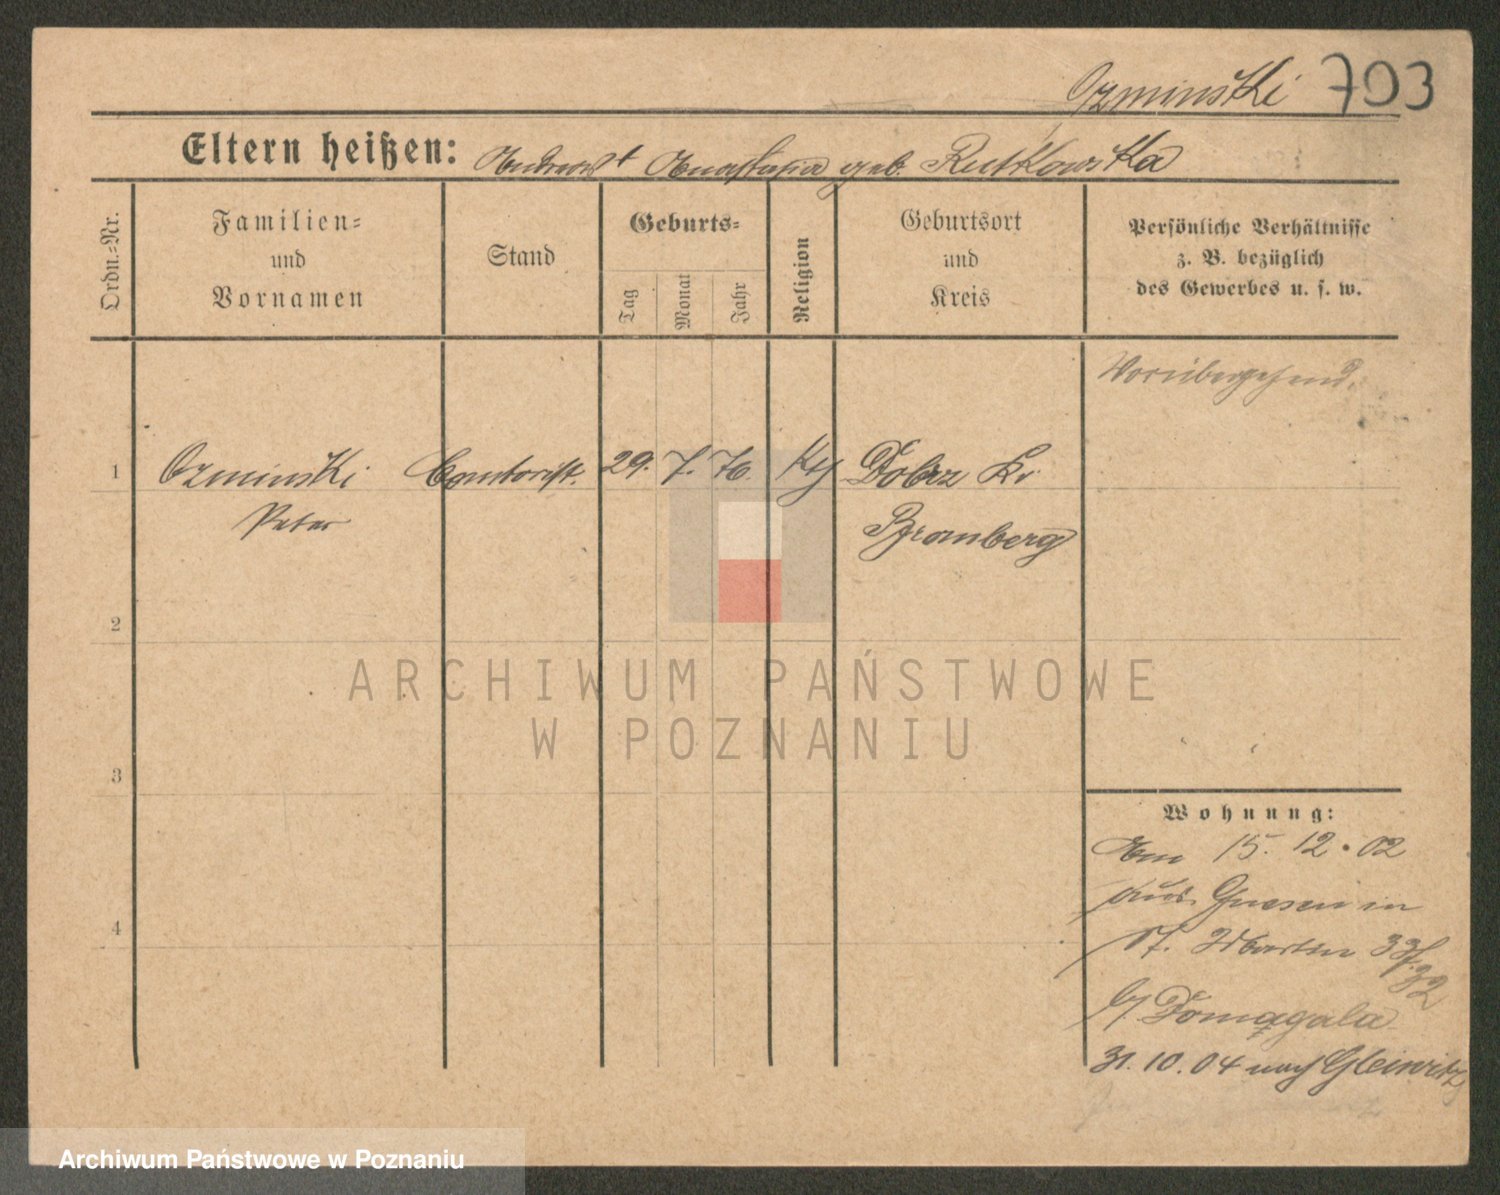 Ozminski 703
Eltern heißen: Andreas + Anastasia geb. Rutkowska
Ordn.-Nr.
Familien-
und
Vornamen
Stand
Geburts-
Tag
Monat
Jahr
Religion
Geburtsort
und
Kreis
Persönliche Verhältnisse
z. B. bezüglich
des Gewerbes u. s. w.
Vorübergehend.
1 Ozminski Contorist. 29. 7. 76. kth Dobrz Kr
Peter Bromberg
2
3
4
Wohnung:
Am 15. 12. 02
aus Gnesen in
St. Martin 33
b/ Domągala
31. 10. 04 nach Gleiwitz
ARCHIWUM PAŃSTWOWE
W POZNANIU
Archiwum Państwowe w Poznaniu